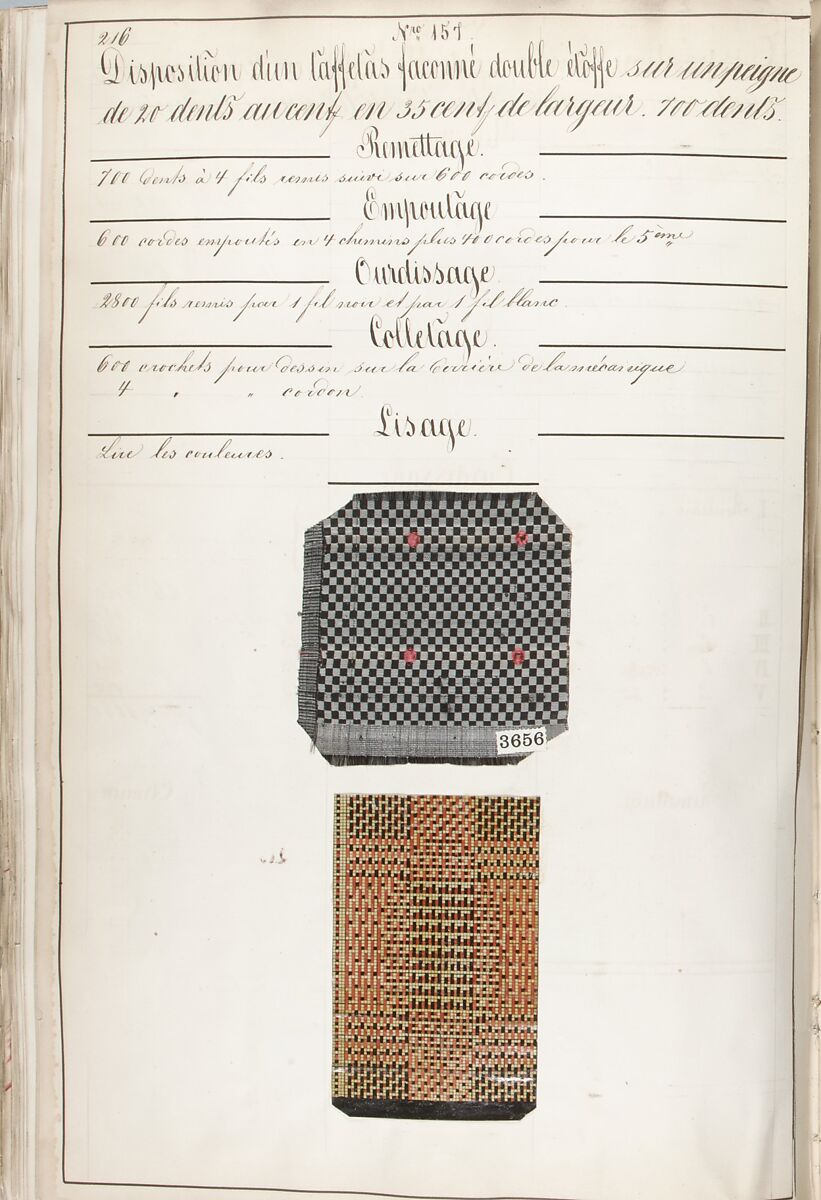 216
Nro 157.
Disposition d'un taffetas façonné double étoffe sur un peigne
de 20 dents au cent, en 35 cent, de largeur. 700 dents.
Remettage.
700 dents à 4 fils remis suivi sur 600 cordes.
Empoutage
600 cordes empoutés en 4 chemins plus 400 cordes pour le 5ème
Ourdissage.
2800 fils remis par 1 fil noir et par 1 fil blanc.
Colletage.
600 crochets pour dessin sur la derrière de la mécanique
4 " " cordon.
Lisage.
Lire les couleures.
3656